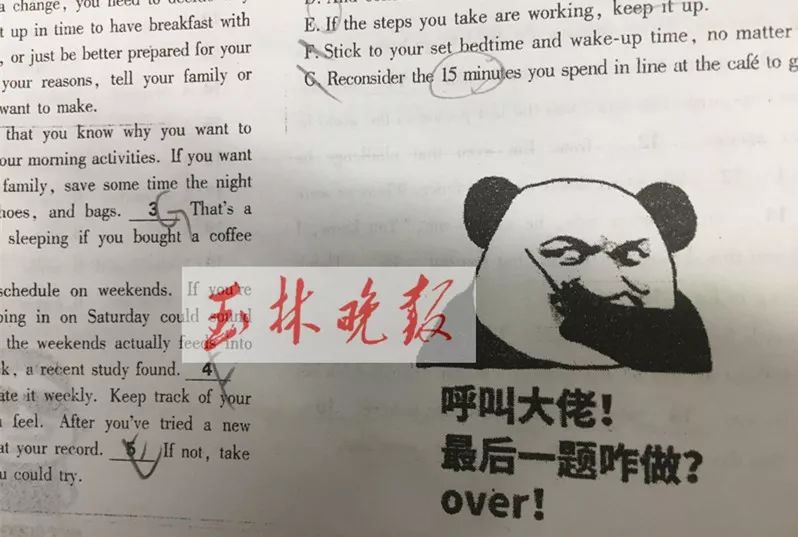 a change, you need to
t up in time to have breakfast with
, or just be better prepared for your
your reasons, tell your family or
want to make.
that you know why you want to
our morning activities. If you want
family, save some time the night
hoes, and bags. 3 That's a
sleeping if you bought a coffee
schedule on weekends. If you're
ping in on Saturday could sound
the weekends actually feeds into
k, a recent study found. 4
ate it weekly. Keep track of your
feel. After you've tried a new
at your record. 5 If not, take
u could try.
E. If the steps you take are working, keep it up.
F. Stick to your set bedtime and wake-up time, no matter
G. Reconsider the 15 minutes you spend in line at the café to g
玉林晚报
呼叫大佬！
最后一题咋做？
over！